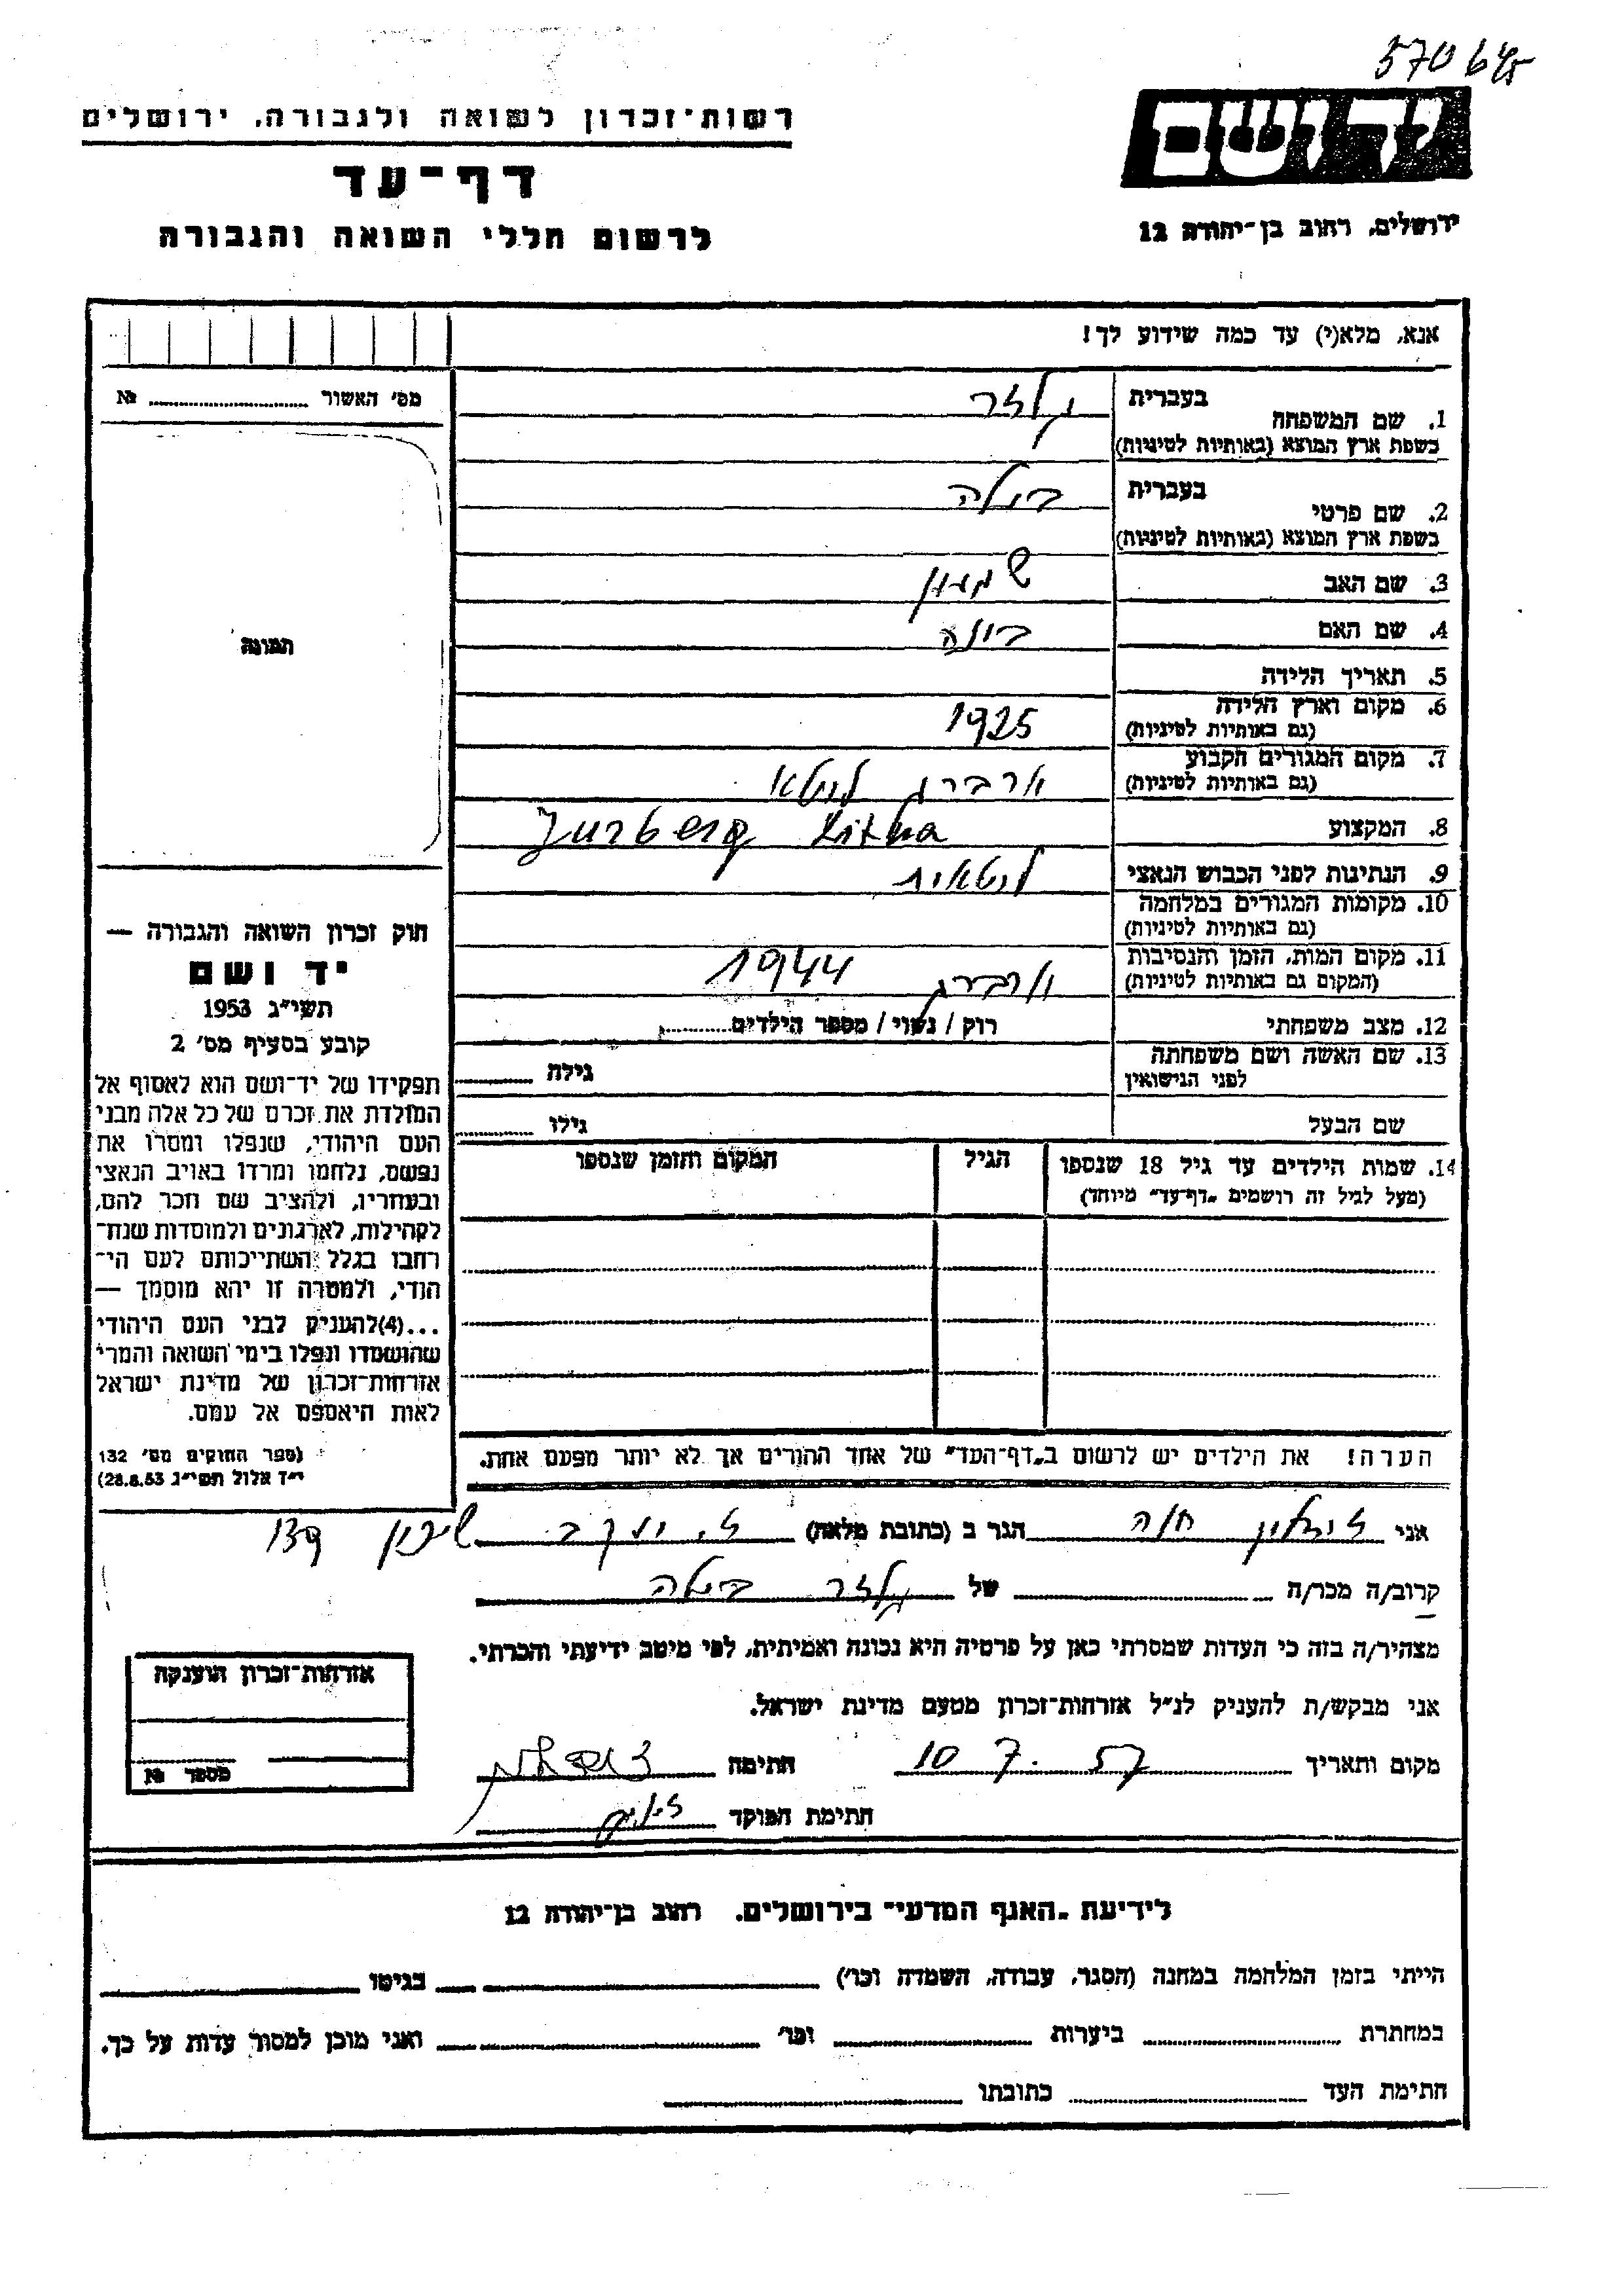 570645
יד ושם
ירושלים, רחוב בן־יהודה 12
רשות־זכרון לשואה ולגבורה, ירושלים
דף־עד
לרשום חללי השואה והגבורה
אנא, מלא(י) עד כמה שידוע לך!
מס׳ האשור №
תמונה
1. שם המשפחה
בעברית
בשפת ארץ המוצא (באותיות לטיניות)
2. שם פרטי
בעברית בילה
בשפת ארץ המוצא (באותיות לטיניות)
3. שם האב שמעון
4. שם האם
5. תאריך הלידה
6. מקום וארץ הלידה 1925
(גם באותיות לטיניות)
7. מקום המגורים הקבוע יורברג ליטא
(גם באותיות לטיניות)
8. המקצוע Jurberg Litha
9. הנתינות לפני הכבוש הנאצי ליטאית
10. מקומות המגורים במלחמה
(גם באותיות לטיניות)
11. מקום המות, הזמן והנסיבות יורברג 1944
(המקום גם באותיות לטיניות)
12. מצב משפחתי רוק / נשוי / מספר הילדים
13. שם האשה ושם משפחתה
לפני הנישואין גילה
שם הבעל גילו
14. שמות הילדים עד גיל 18 שנספו הגיל המקום והזמן שנספו
(מעל לגיל זה רושמים „דף־עד״ מיוחד)
הערה! את הילדים יש לרשום ב„דף־העד״ של אחד ההורים אך לא יותר מפעם אחת.
חוק זכרון השואה והגבורה —
יד ושם
תשי״ג 1953
קובע בסעיף מס׳ 2
תפקידו של יד־ושם הוא לאסוף אל
המולדת את זכרם של כל אלה מבני
העם היהודי, שנפלו ומסרו את
נפשם, נלחמו ומרדו באויב הנאצי
ובעוזריו, ולהציב שם וזכר להם,
לקהילות, לארגונים ולמוסדות שנח־
רבו בגלל השתייכותם לעם הי־
הודי, ולמטרה זו יהא מוסמך —
...(4)להעניק לבני העם היהודי
שהושמדו ונפלו בימי השואה והמרי
אזרחות־זכרון של מדינת ישראל
לאות היאספם אל עמם.
(ספר החוקים מס׳ 132
י״ז אלול תשי״ג 28.8.53)
אני חוה הגר ב (כתובת מלאה) ז. יעקב שיכון 139
קרוב/ה מכר/ה של בילה
מצהיר/ה בזה כי העדות שמסרתי כאן על פרטיה היא נכונה ואמיתית, לפי מיטב ידיעתי והכרתי.
אני מבקש/ת להעניק לנ״ל אזרחות־זכרון מטעם מדינת ישראל.
מקום ותאריך 10 7. 57 חתימה
חתימת הפוקד
אזרחות־זכרון הוענקה
מספר №
לידיעת „האגף המדעי״ בירושלים, רחוב בן־יהודה 12
הייתי בזמן המלחמה במחנה (הסגר, עבודה, השמדה וכו׳) בגיטו
במחתרת ביערות וכו׳ ואני מוכן למסור עדות על כך.
חתימת העד כתובתו